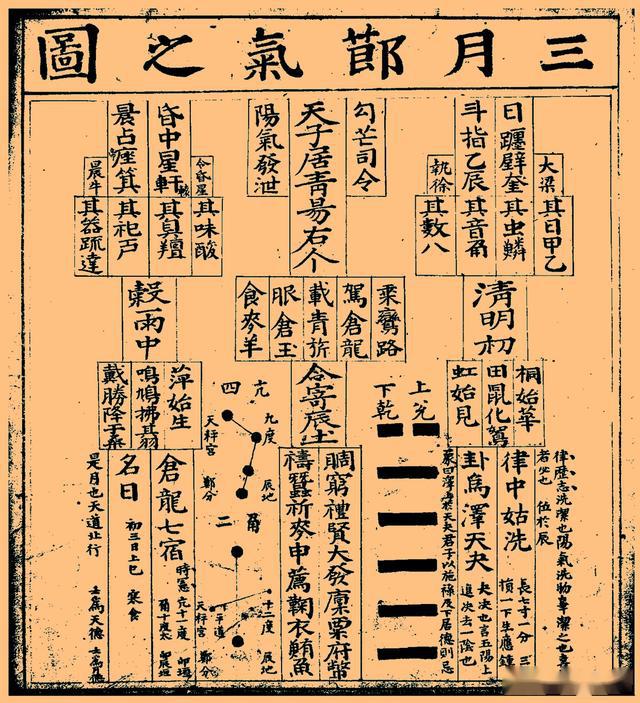 三月節氣之圖
大梁
其日甲乙
日躔壁奎
其虫鱗
斗指乙辰
其音角
執徐
其數八
勾芒司令
天子居青昜右个
陽氣發泄
令昏星
其味酸
昏中星軒
其臭羶
晨占痤箕
其祀户
晨牛
其器疏達
清明初
乘鸞路
駕倉龍
載青旂
服倉玉
食麥羊
榖雨中
桐始華
田鼠化鴽
虹始見
上兌
下乾
合寄辰土
亢四
九度
辰地
天秤宮
鄭分
萍始生
鳴鳩拂其羽
戴勝降于桑
律歷志洗潔也陽氣洗物辜潔之也
位於辰
律中姑洗
長七寸一分
損一下生應鐘
卦爲澤天夬
夬決也言五陽上
進決去一陰也
君子以施祿及下居德則忌
賙窮禮賢大發廩粟府幣
禱蠶祈麥申薦鞠衣鮪魚
角二
十二度
辰地
平道
天秤宮
鄭分
倉龍七宿
名日
初三日上巳
寒食
是月也天道北行
壬爲天德